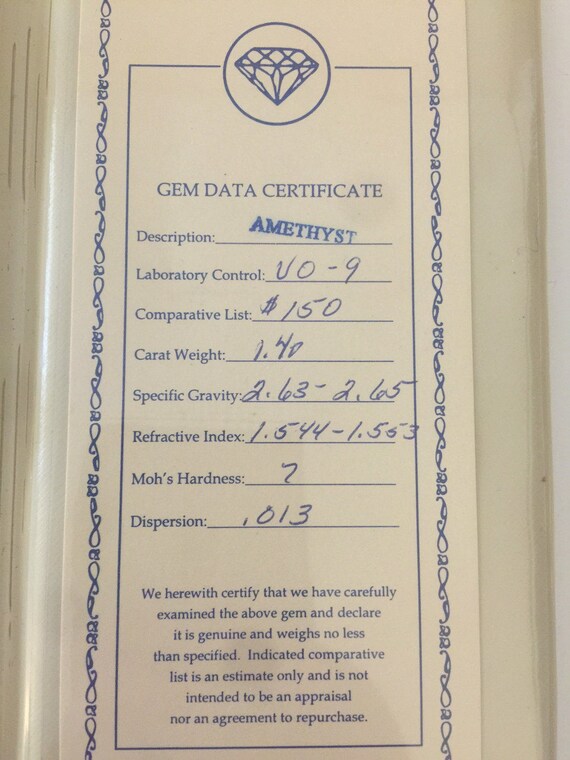 GEM DATA CERTIFICATE
Description: AMETHYST
Laboratory Control: VO-9
Comparative List: $150
Carat Weight: 1.40
Specific Gravity: 2.63 - 2.65
Refractive Index: 1.544 - 1.553
Moh's Hardness: 7
Dispersion: .013
We herewith certify that we have carefully
examined the above gem and declare
it is genuine and weighs no less
than specified. Indicated comparative
list is an estimate only and is not
intended to be an appraisal
nor an agreement to repurchase.